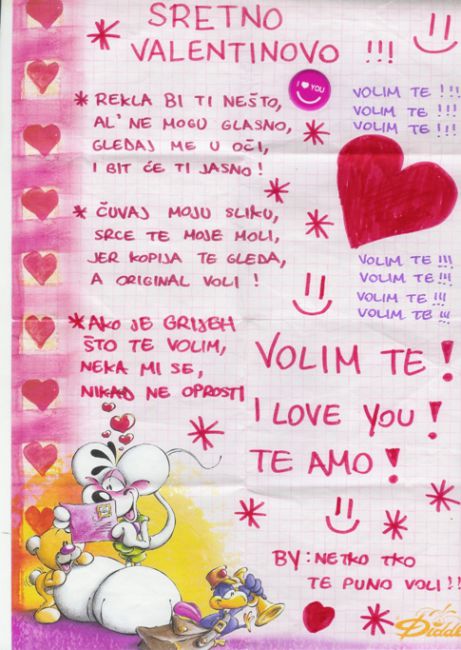 SRETNO
VALENTINOVO !!!
I ♥ YOU
VOLIM TE !!!
VOLIM TE !!!
VOLIM TE !!!
* REKLA BI TI NEŠTO,
AL' NE MOGU GLASNO,
GLEDAJ ME U OČI,
I BIT ĆE TI JASNO!
* ČUVAJ MOJU SLIKU,
SRCE TE MOJE MOLI,
JER KOPIJA TE GLEDA,
A ORIGINAL VOLI!
VOLIM TE !!!
VOLIM TE !!!
VOLIM TE !!!
VOLIM TE !!!
* AKO JE GRIJEH
ŠTO TE VOLIM,
NEKA MI SE,
NIKAD NE OPROSTI
VOLIM TE!
I LOVE YOU!
TE AMO!
BY: NETKO TKO
TE PUNO VOLI!!
Diddl